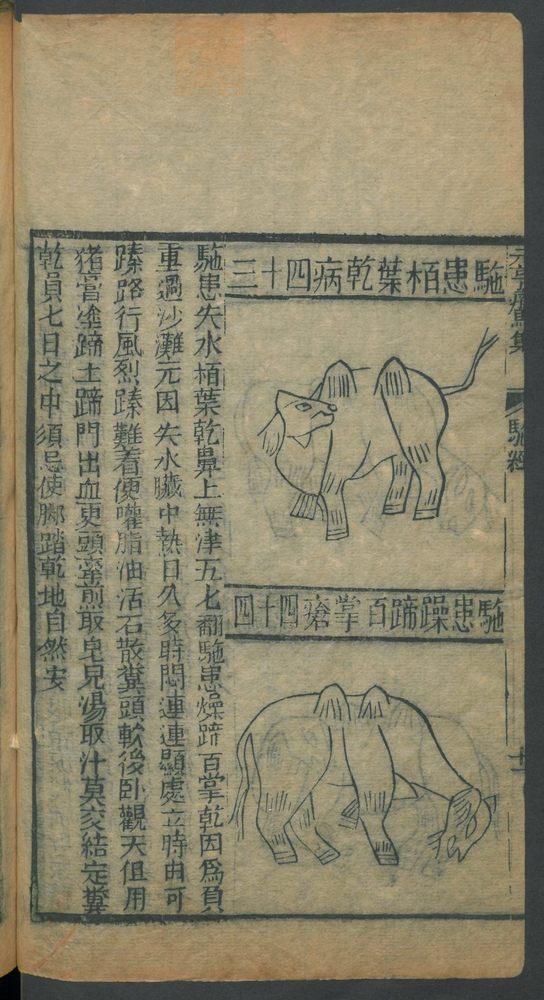 元亨療馬集
駞經
駞患栢葉乾病四十三
駞患躁蹄百掌瘡四十四
駞患失水栢葉乾鼻上無津五七翻駞患燥蹄百掌乾因爲負
重過沙灘元因失水臟中熱日久多時悶連連顯處立時由可
路行風烈難着便嚾脂油活石散糞頭軟後卧觀天但用
猪膏塗蹄土蹄門出血更頭煎取皂見湯取汁莫交結定糞
乾員七日之中須忌使脚踏乾地自然安